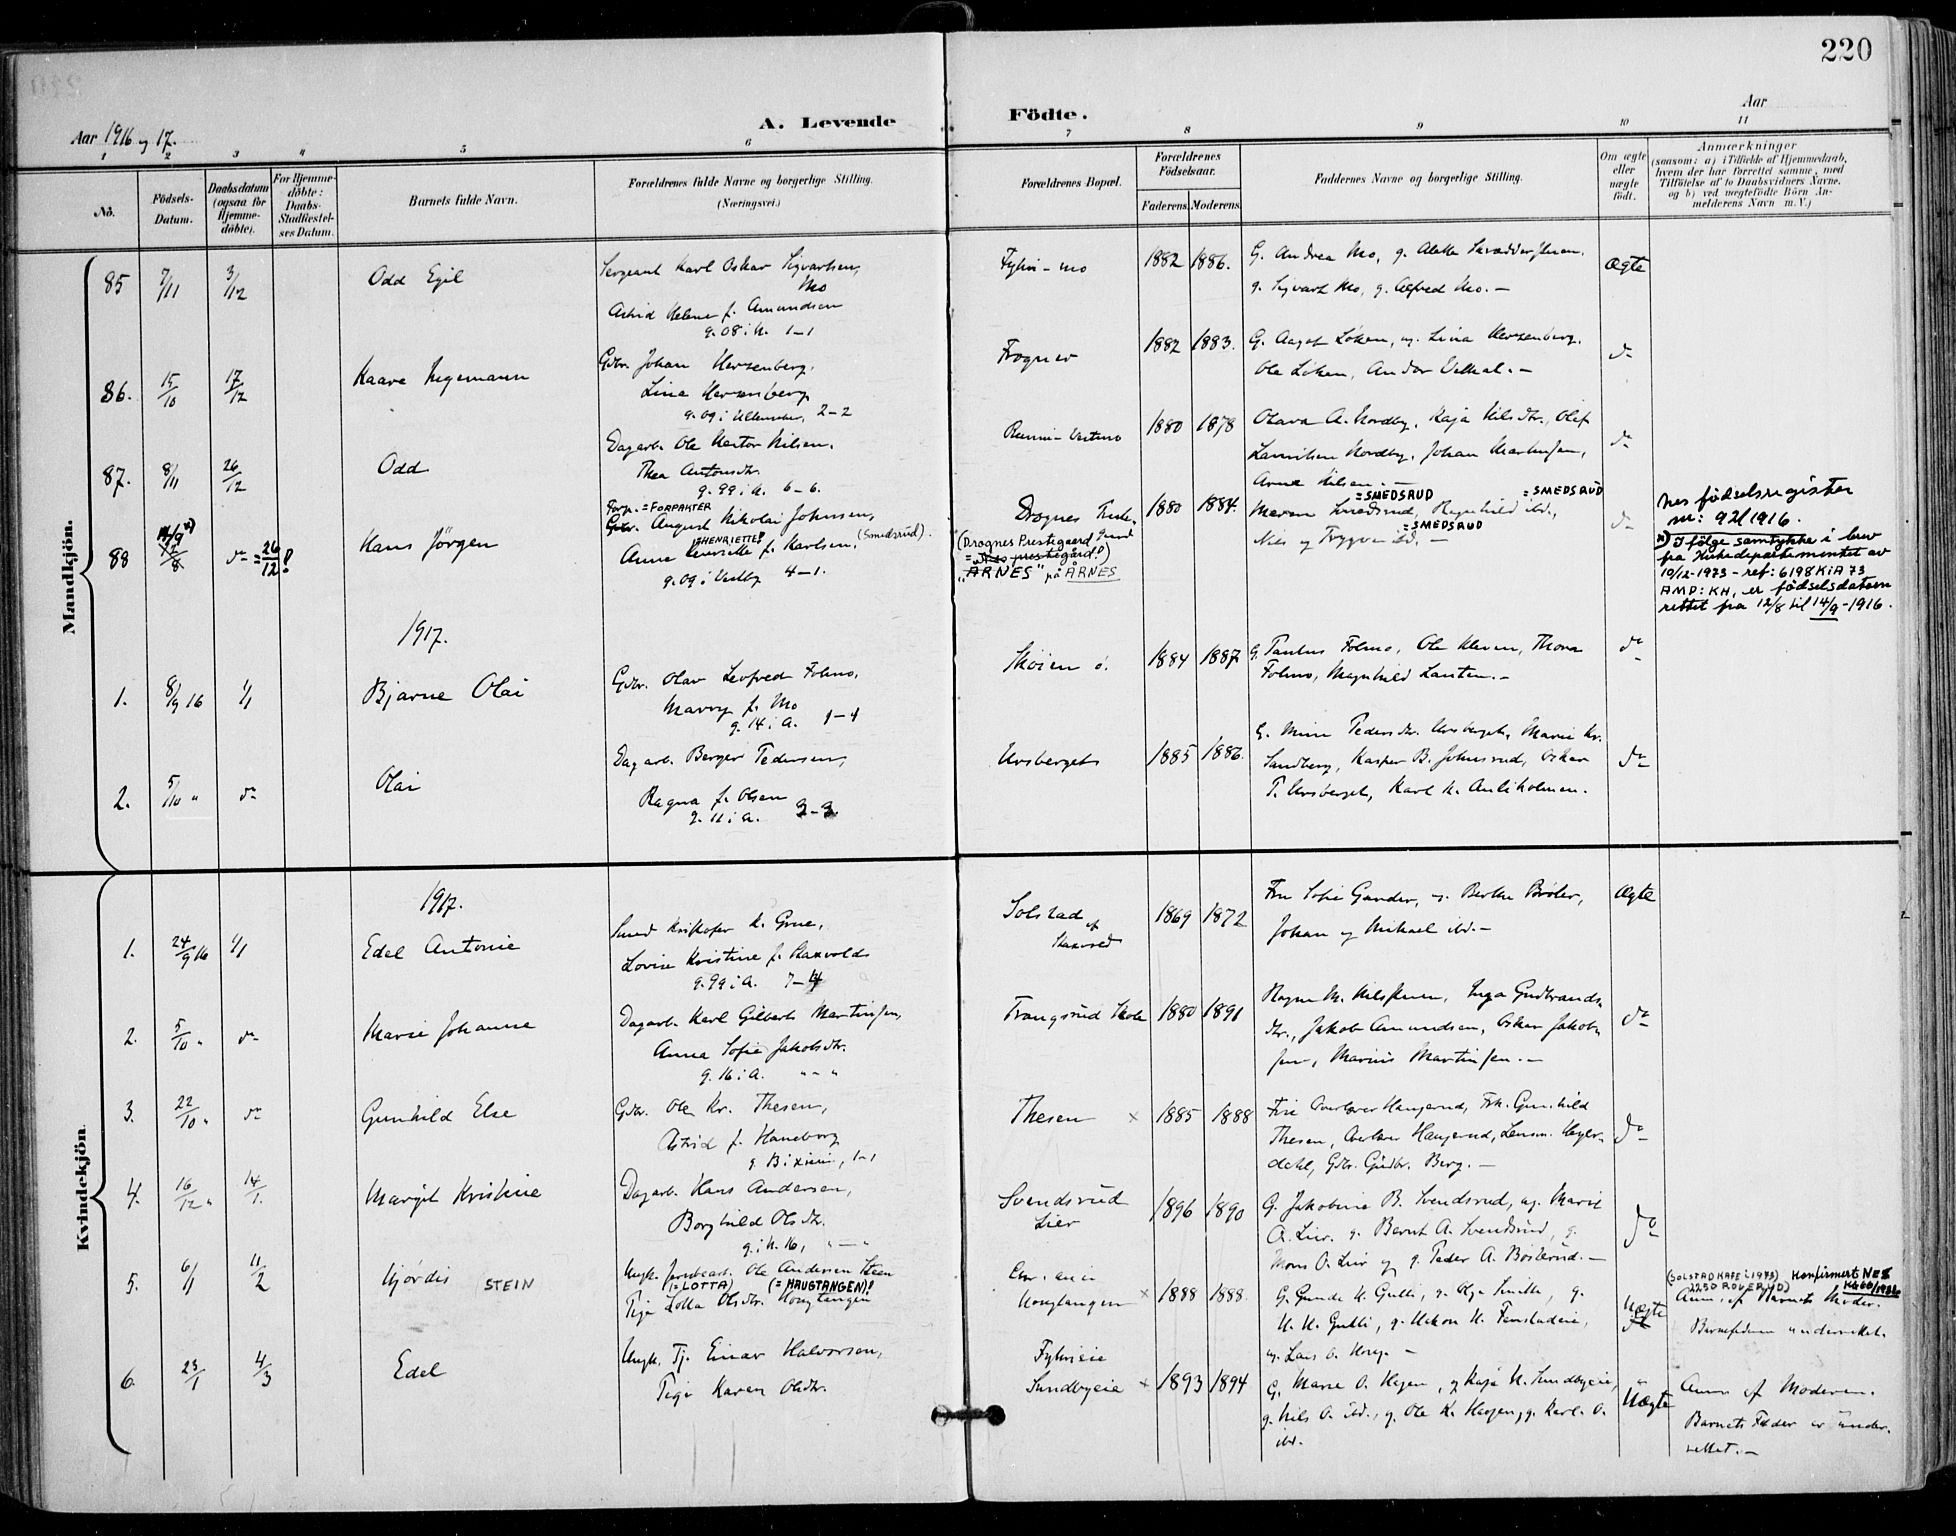 220
A. Levende Födte.
Aar 1916 og 17.
Aar
1 2 3 4 5 6 7 8 9 10 11
No.
Födsels-Datum.
Daabsdatum (ogsaa for Hjemme-döbte).
For Hjemme-döbte: Daabs-Stadfæstelses Datum.
Barnets fulde Navn.
Forældrenes fulde Navne og borgerlige Stilling.
(Næringsvei.)
Forældrenes Bopæl.
Forældrenes Födselsaar.
Faderens. Moderens.
Faddernes Navne og borgerlige Stilling.
Om ægte eller uægte födt.
Anmærkninger
(saasom: a) i Tilfælde af Hjemmedaab, hvem der har forrettet samme, med Tilföielse af to Daabsvidners Navne, og b) ved uægtefödte Börn Anmelderens Navn m. V.)
Mandkjön.
85 7/11 3/12 Odd Egil
Sergeant Karl Oskar Sigvartsen, Mo
Astrid Helene f. Amundsen
g. 08 i N. 1-1
Fylvi-mo 1882 1886.
G. Andrea Mo, g. Alette
g. Sigvart Mo, g. Alfred Mo. -
Ægte
86. 15/10 17/12 Kaare Ingemann
Gdbr. Johan Herzenberg,
Lina Herzenberg
g. 09 i Ullensaker, 2-2
Frogner 1882 1883.
G. Aagot Löken, og. Lina Herzenberg,
Ole Löken, Andor -
do
87. 8/11 26/12 Odd
Dagarb. Ole Martor Nilsen,
Thea Antonsdtr.
g. 99 i A. 6-6.
1880 1878
Olava A. Nordby, Kaja Nilsdtr., Olaf
Lauritsen Nordby, Johan
Arne Nilsen. -
do
88 14/9 x) 12/8 do = 26/12! Hans Jörgen
Forp. = FORPAKTER
Gdbr. August Nikolai Johnsen,
(Smedsrud).
= HENRIETTE!
Anna Henriette f. Karlsen,
g. 09 i Vestby 4-1.
Drognes
(Drognes Prestegaard
"ÅRNES" på ÅRNES
1880 1884.
= SMEDSRUD = SMEDSRUD
Maren Smedsrud, Ragnhild ibd.,
= SMEDSRUD
Nils og Trygve ibd. -
do
Nes födselsregister
nr: 92/1916.
x) I følge samtykke i brev
fra Kirkedepartementet av
10/12-1973 - ref: 6198 KiA 73
AMD: KH, er födselsdatoen
rettet fra 12/8 til 14/9-1916.
1917.
1. 8/9 16 1/1 Bjarne Olai
Gdbr. Olav Leofred Folmo,
Marry f. Mo
g. 14 i A. 1-1
Skóien ö. 1884 1887
G. Paulus Folmo, Ole Kleven, Thora
Folmo, Magnhild Lauten. -
do
2. 5/10 " do Olai
Dagarb. Berger Pedersen,
Ragna f. Olsen
g. 11 i A. 3-3.
Ursberget 1885 1886.
G. Mina Pedersdtr. Ursberget, Marie Kr.
Sandberg, Kasper B. Johnsrud, Oskar
P. Ursberget, Karl K. Auliholmen.
do
Kvindekjön.
1917.
1. 24/9 16 1/1 Edel Antonie
Smed Kristofer K. Grue,
Lovise Kristine f. Skaxvold
g. 99 i A. 7-4
Solstad af 1869 1872
Fru Sofie Gander, og. Berthe Bröler,
Johan og Mikael ibd. -
Ægte
2. 5/10 " do Marie Johanne
Dagarb. Karl Gilbert Martinsen,
Anna Sofie Jakobsdtr.
g. 16 i A. " - "
Trangsrud Skole 1880 1891
Ragna M. Inga Gudbrands-
dtr., Jakob Amundsen, Oskar Jakob-
sen, Marius Martinsen. -
do
3. 22/10 " do Gunhild Else
Gdbr. Ole Kr. Thesen,
Astrid f. Haneborg
g. 1-1
Thesen x 1885 1888
Fru Overlærer Haugerud, Frk. Gunhild
Thesen, Overlærer Haugerud, Lensm. Heyer-
dahl, Gdbr. Gudbr. Berg. -
do
4. 16/12 " 14/1. Margit Kristine
Dagarb. Hans Andersen,
Borghild Olsdtr.
g. i N. 16, " - "
Svendsrud
Lier
1896 1890
G. Jakobine B. Svendsrud, og. Marit
O. Lier, g. Bernt A. Svendsrud, g.
Mons O. Lier og g. Peder A. Bosterud. -
do
5. 6/1 11/2 Hjördis STEIN
Ungk. Ole Andersen Steen
(= LOTTA) (= HAUGTANGEN)!
Pige Lotta Olsdtr. Haugtangen
Haugtangen x 1888 1888.
G. Gunda H. Gulli, g. Olga g.
H. H. Gulli, g. Hakon H.
og. Lars O. Haug. -
Uægte
(SOLSTAD KAFE i 1973) Konfirmert NES
2250 ROVERUD)
Anm. af Barnets Moder.
Barnefaderen underrettet.
6. 23/1 4/3 Edel
Ungk. Tj. Einar Halvorsen,
Pige Karen Olsdtr.
Fylvieie
Sundbyeie x 1893 1894
G. Marie O. Hagen, g. Kaja N. Sundbyeie,
g. Nils O. ibd., g. Ole K. Haagen, g. Karl O.
ibd.
Uægte
Anm. af Moderen.
Barnets Fader er under-
rettet. -